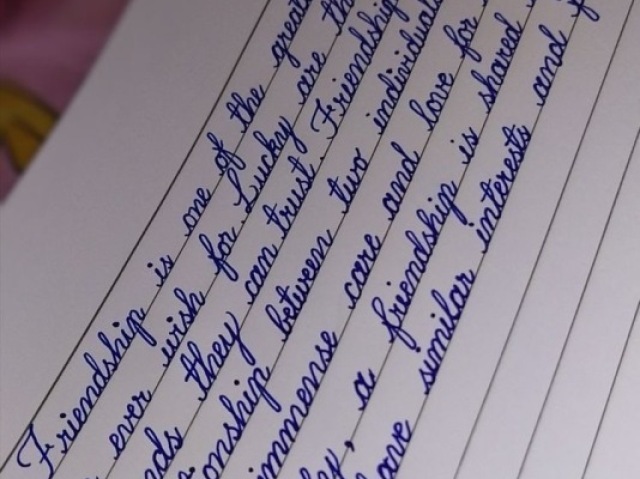 Friendship is one of the
ever wish for Lucky are
they can trust. Friendship
between two individual
immense care and love for
a friendship is shared
similar interests and